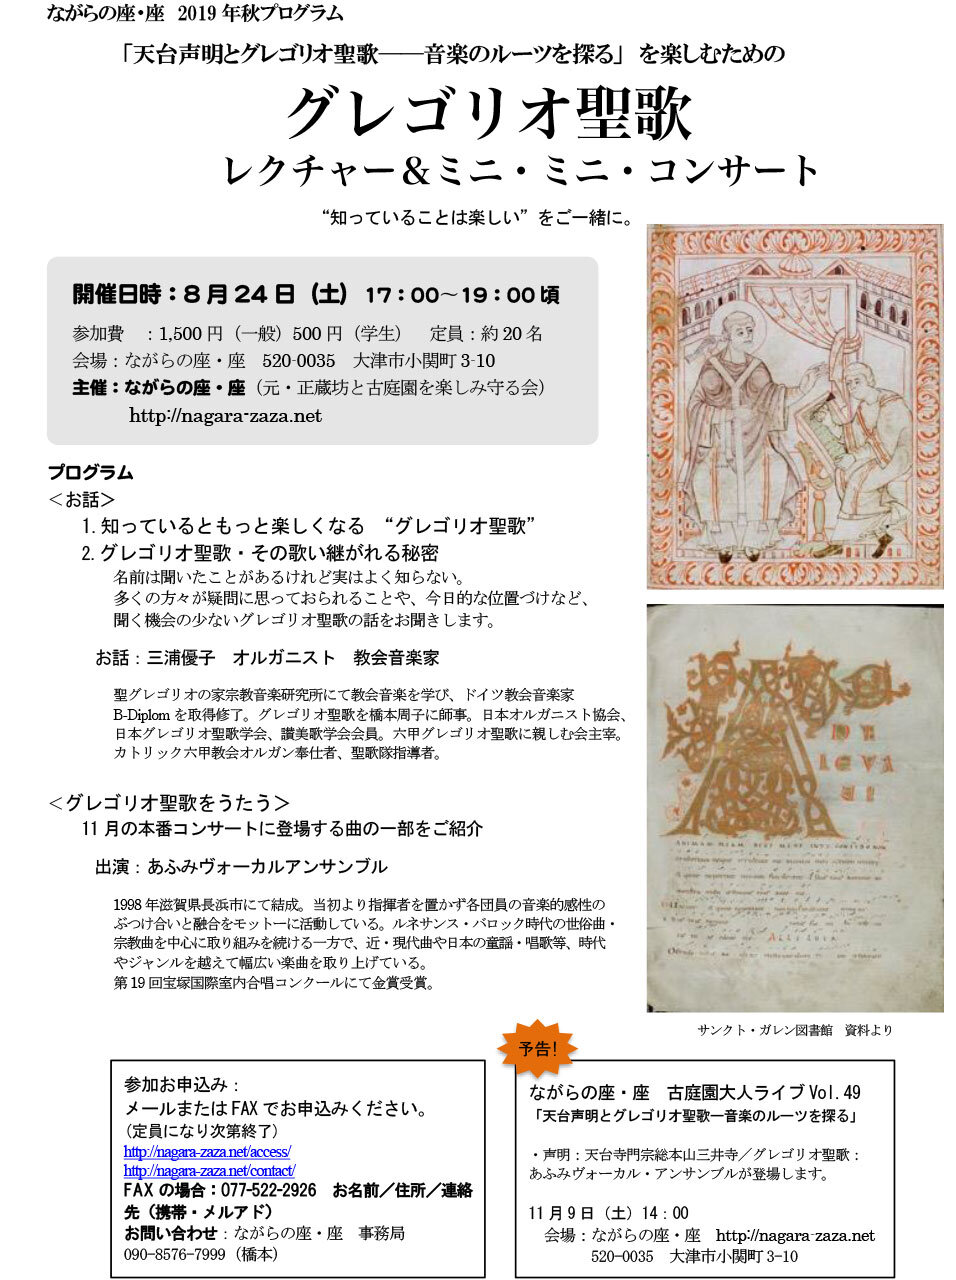 ながらの座・座　2019 年秋プログラム
「天台声明とグレゴリオ聖歌――音楽のルーツを探る」を楽しむための
グレゴリオ聖歌
レクチャー＆ミニ・ミニ・コンサート
“知っていることは楽しい”をご一緒に。
開催日時：8 月 24 日（土） 17：00～19：00 頃
参加費　：1,500 円（一般）500 円（学生）　定員：約 20 名
会場：ながらの座・座　520-0035　大津市小関町 3-10
主催：ながらの座・座（元・正蔵坊と古庭園を楽しみ守る会）
http://nagara-zaza.net
プログラム
＜お話＞
1. 知っているともっと楽しくなる　“グレゴリオ聖歌”
2. グレゴリオ聖歌・その歌い継がれる秘密
名前は聞いたことがあるけれど実はよく知らない。
多くの方々が疑問に思っておられることや、今日的な位置づけなど、
聞く機会の少ないグレゴリオ聖歌の話をお聞きします。
お話：三浦優子　オルガニスト　教会音楽家
聖グレゴリオの家宗教音楽研究所にて教会音楽を学び、ドイツ教会音楽家
B-Diplom を取得修了。グレゴリオ聖歌を橋本周子に師事。日本オルガニスト協会、
日本グレゴリオ聖歌学会、讃美歌学会会員。六甲グレゴリオ聖歌に親しむ会主宰。
カトリック六甲教会オルガン奉仕者、聖歌隊指導者。
＜グレゴリオ聖歌をうたう＞
11 月の本番コンサートに登場する曲の一部をご紹介
出演：あふみヴォーカルアンサンブル
1998 年滋賀県長浜市にて結成。当初より指揮者を置かず各団員の音楽的感性の
ぶつけ合いと融合をモットーに活動している。ルネサンス・バロック時代の世俗曲・
宗教曲を中心に取り組みを続ける一方で、近・現代曲や日本の童謡・唱歌等、時代
やジャンルを越えて幅広い楽曲を取り上げている。
第 19 回宝塚国際室内合唱コンクールにて金賞受賞。
サンクト・ガレン図書館　資料より
参加お申込み：
メールまたは FAX でお申込みください。
（定員になり次第終了）
http://nagara-zaza.net/access/
http://nagara-zaza.net/contact/
FAX の場合：077-522-2926　お名前／住所／連絡
先（携帯・メルアド）
お問い合わせ：ながらの座・座　事務局
090-8576-7999（橋本）
予告!
ながらの座・座　古庭園大人ライブ Vol. 49
「天台声明とグレゴリオ聖歌―音楽のルーツを探る」
・声明：天台寺門宗総本山三井寺／グレゴリオ聖歌：
あふみヴォーカル・アンサンブルが登場します。
11 月 9 日（土）14：00
会場：ながらの座・座　http://nagara-zaza.net
520-0035　大津市小関町 3-10